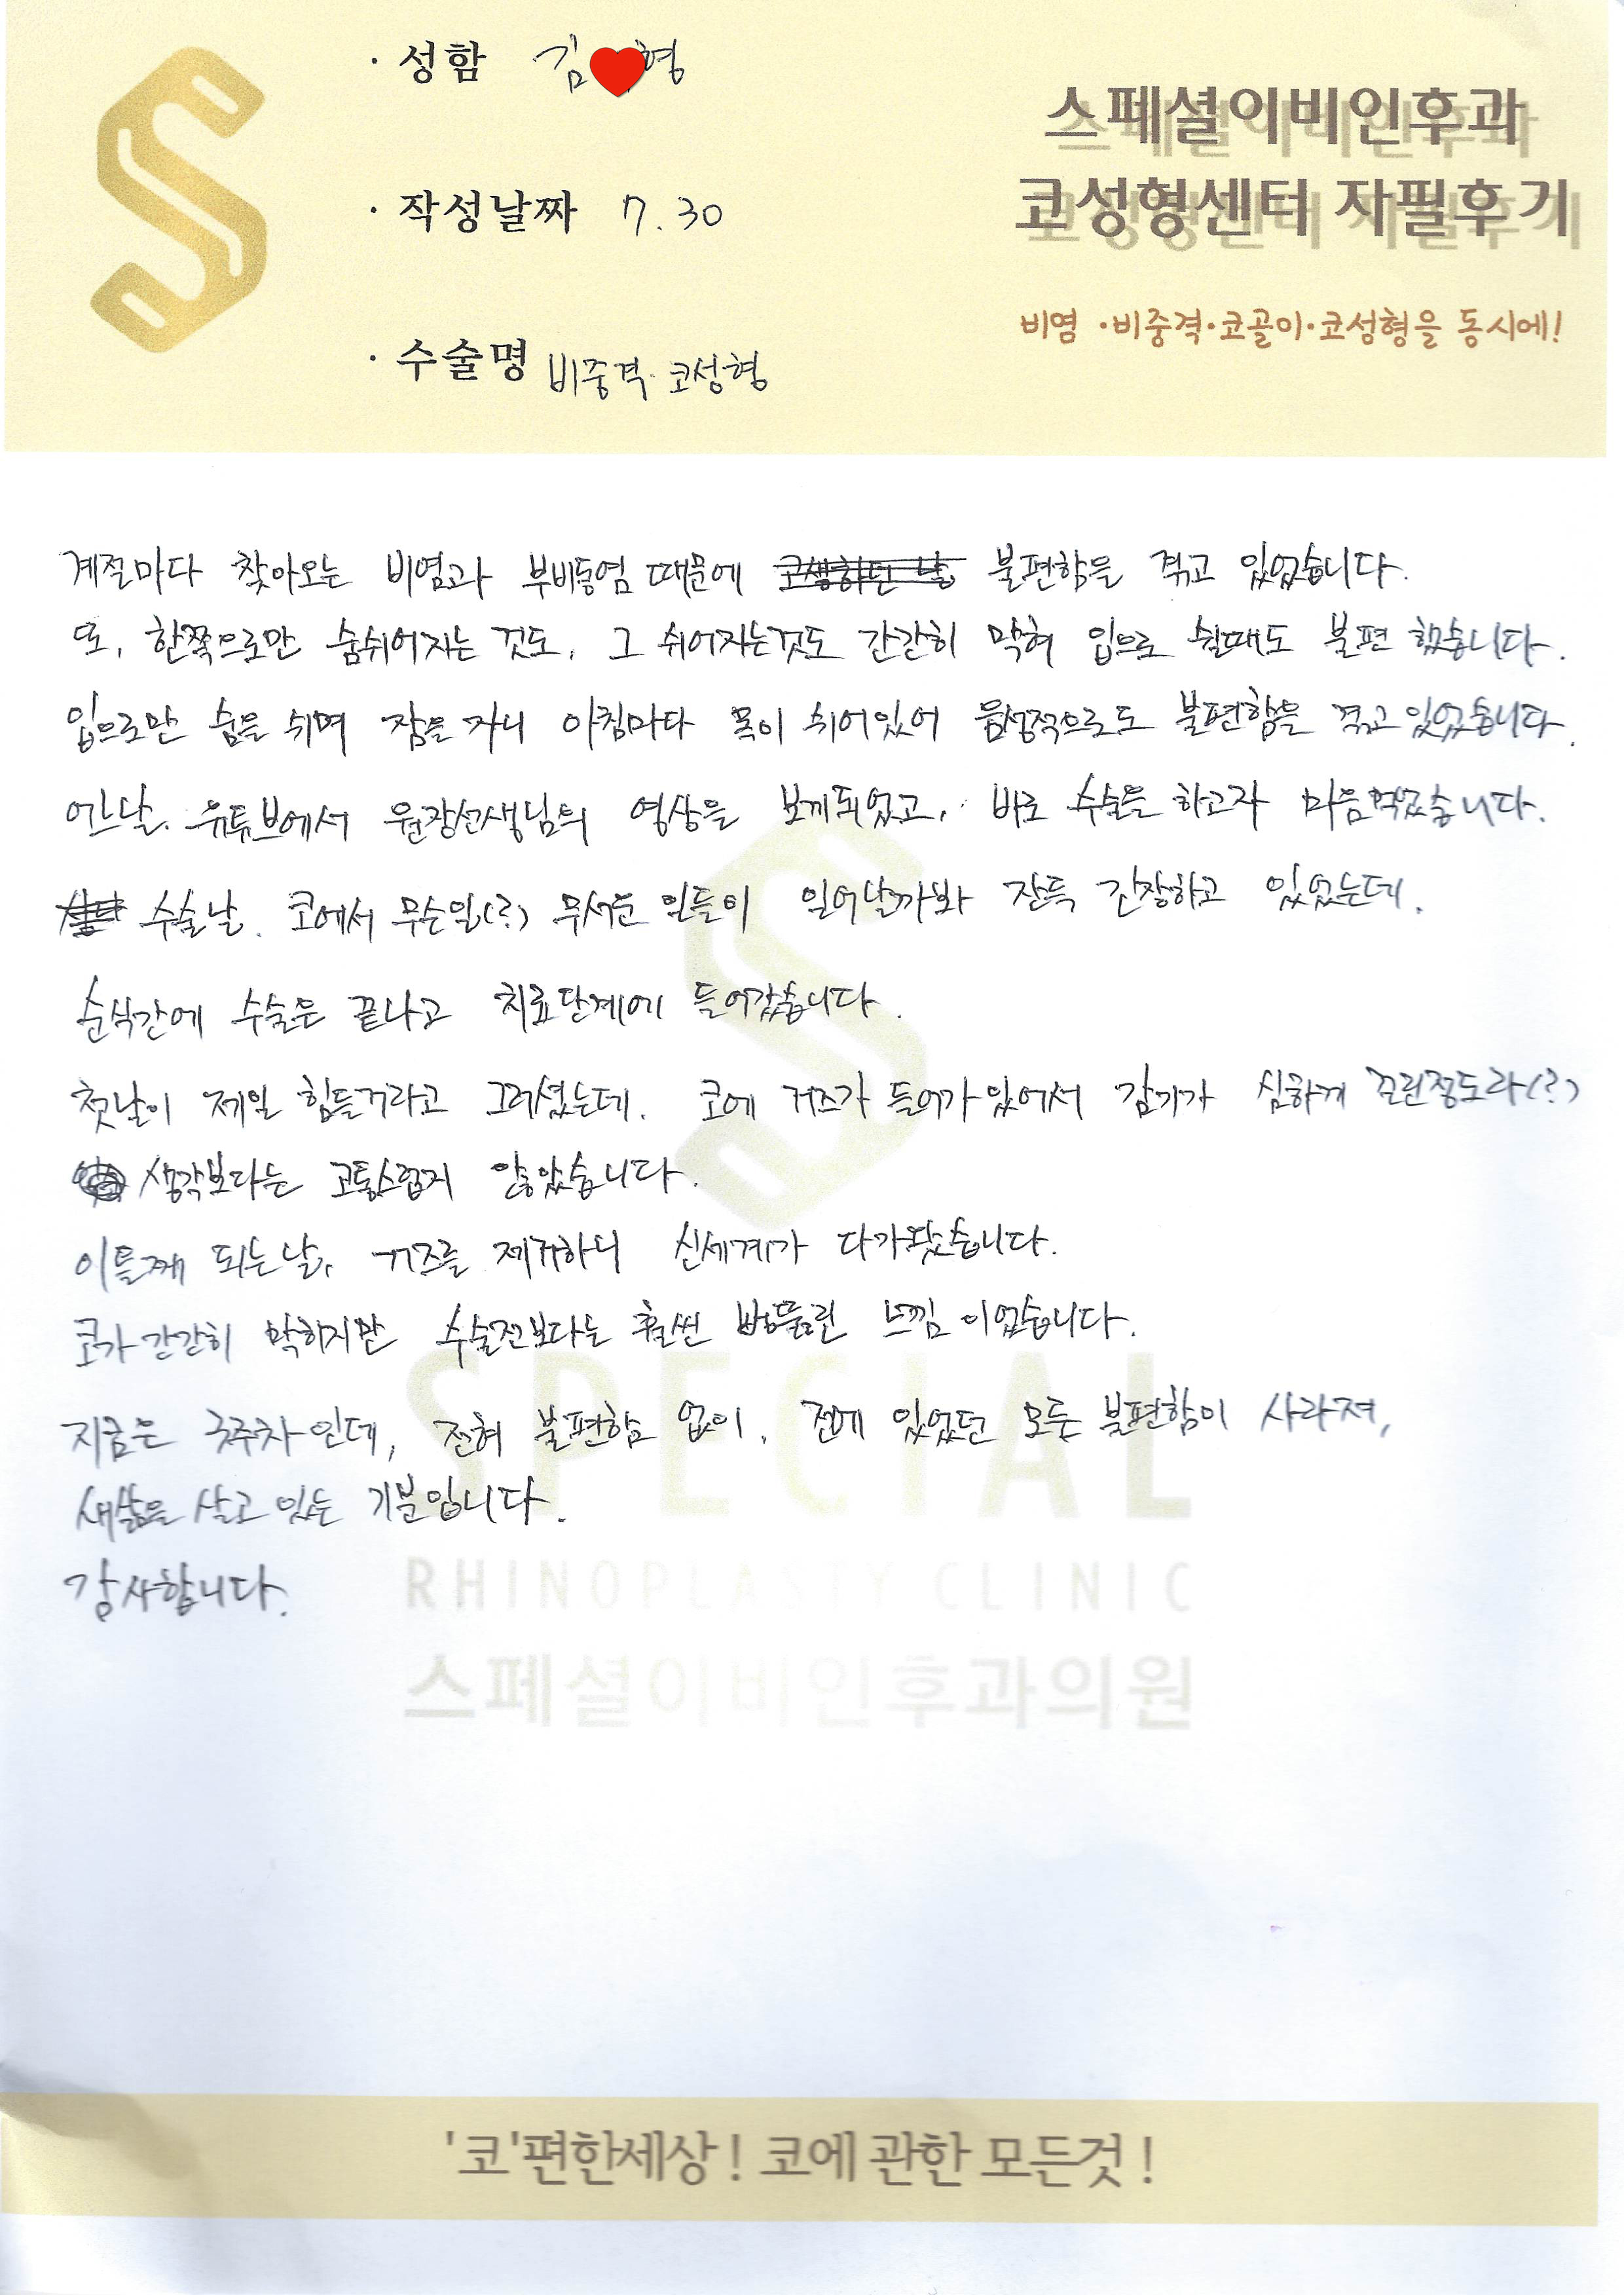 · 성함 김 형
· 작성날짜 7.30
· 수술명 비중격·코성형
스페셜이비인후과
코성형센터 자필후기
비염·비중격·코골이·코성형을 동시에!
계절마다 찾아오는 비염과 부비동염 때문에 불편함을 겪고 있었습니다.
또, 한쪽으로만 숨쉬어지는 것도, 그 쉬어지는것도 간간히 막혀 입으로 쉴때도 불편 했습니다.
입으로만 숨을 쉬며 잠을 자니 아침마다 목이 쉬어있어 음성적으로도 불편함을 겪고있었습니다.
어느날, 유튜브에서 원장선생님의 영상을 보게되었고, 바로 수술을 하고자 마음먹었습니다.
수술날. 코에서 무슨일(?) 무서운 일들이 일어날까봐 잔뜩 긴장하고 있었는데,
순식간에 수술은 끝나고 치료단계에 들어갔습니다.
첫날이 제일 힘들거라고 그러셨는데, 코에 거즈가 들어가있어서 감기가 심하게 걸린정도라(?)
생각보다는 고통스럽지 않았습니다.
이틀째 되는날, 거즈를 제거하니 신세계가 다가왔습니다.
코가 간간히 막히지만 수술전보다는 훨씬 뻥뚫린 느낌이었습니다.
지금은 3주차인데, 전혀 불편함 없이, 전에 있었던 모든 불편함이 사라져,
새삶을 살고 있는 기분입니다.
감사합니다.
SPECIAL
RHINOPLASTY CLINIC
스페셜이비인후과의원
'코'편한세상! 코에 관한 모든것!